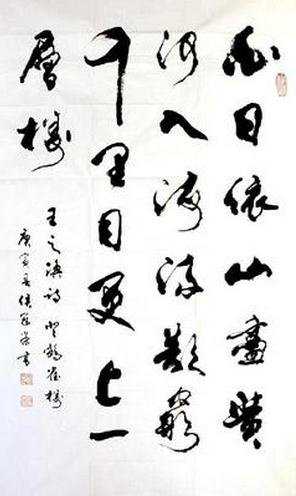 白日依山盡黃
河入海流欲窮
千里目更上一
層樓
王之渙詩 登鸛雀樓
庚寅春 書